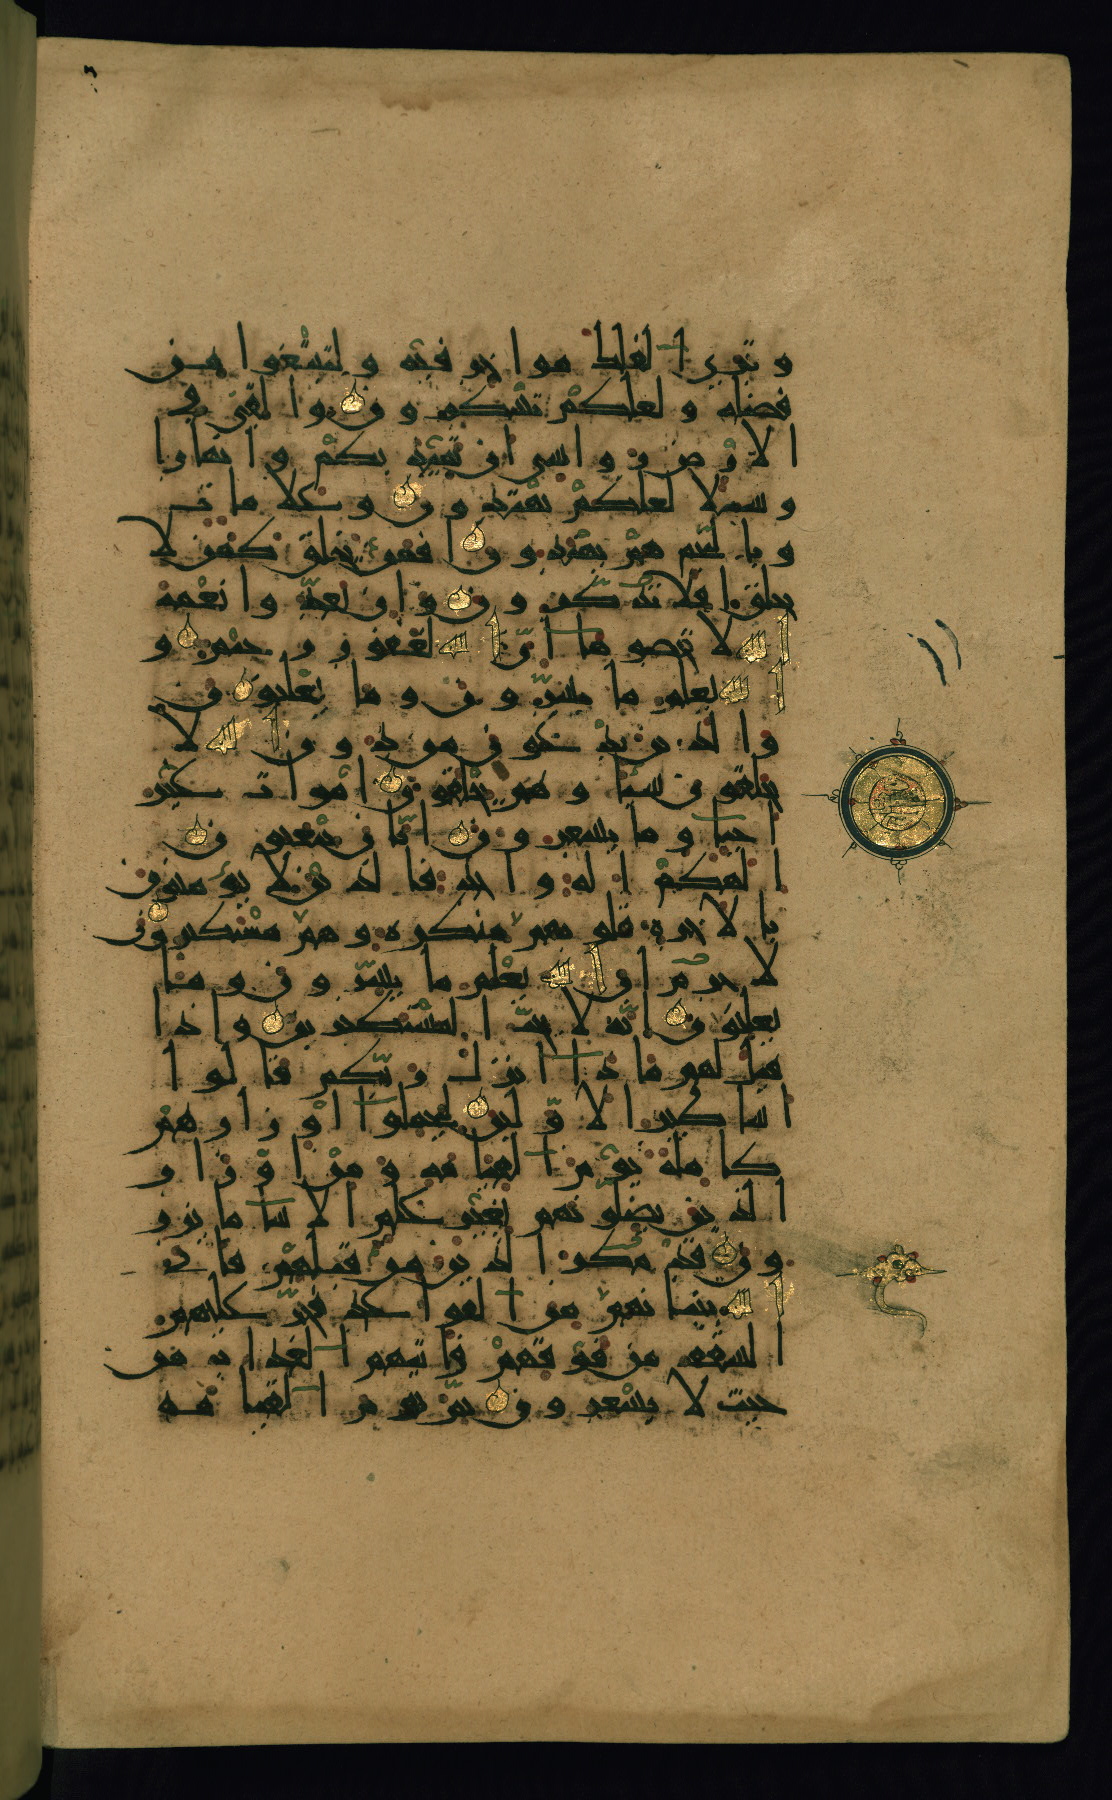 و ترى الفلك مواخر فيه و لتبتغوا من
فضله و لعلكم تشكرون والقى في
الارض رواسي ان تميد بكم و انهارا
و سبلا لعلكم تهتدون و علامات
و بالنجم هم يهتدون افمن يخلق كمن لا
يخلق افلا تذكرون وان تعدوا نعمة
الله لا تحصوها ان الله لغفور رحيم و
الله يعلم ما تسرون و ما تعلنون
والذين يدعون من دون الله لا
يخلقون شيئا و هم يخلقون اموات غير
احيا و ما يشعرون ايان يبعثون
الهكم اله واحد فالذين لا يؤمنون
بالاخرة قلوبهم منكرة و هم مستكبرون
لا جرم ان الله يعلم ما يسرون و ما
يعلنون انه لا يحب المستكبرين واذا
قيل لهم ماذا انزل ربكم قالوا
اساطير الاولين ليحملوا اوزارهم
كاملة يوم القيامة و من اوزار
الذين يضلونهم بغير علم الا سا ما يزر
ون قد مكر الذين من قبلهم فاتى
الله بنيانهم من القواعد فخر عليهم
السقف من فوقهم واتيهم العذاب من
حيث لا يشعرون ثم يوم القيامة